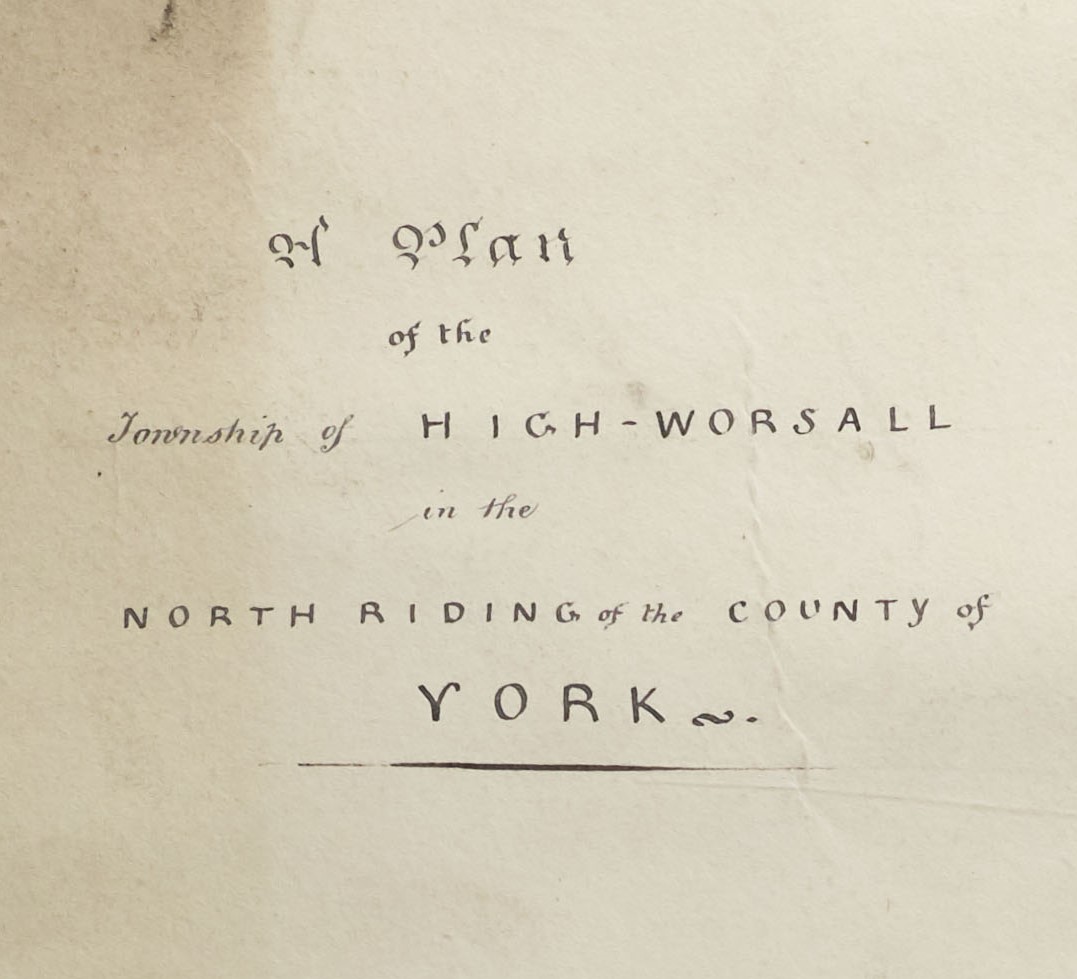 A Plan
of the
Township of HIGH-WORSALL
in the
NORTH RIDING of the COUNTY of
YORK ~.